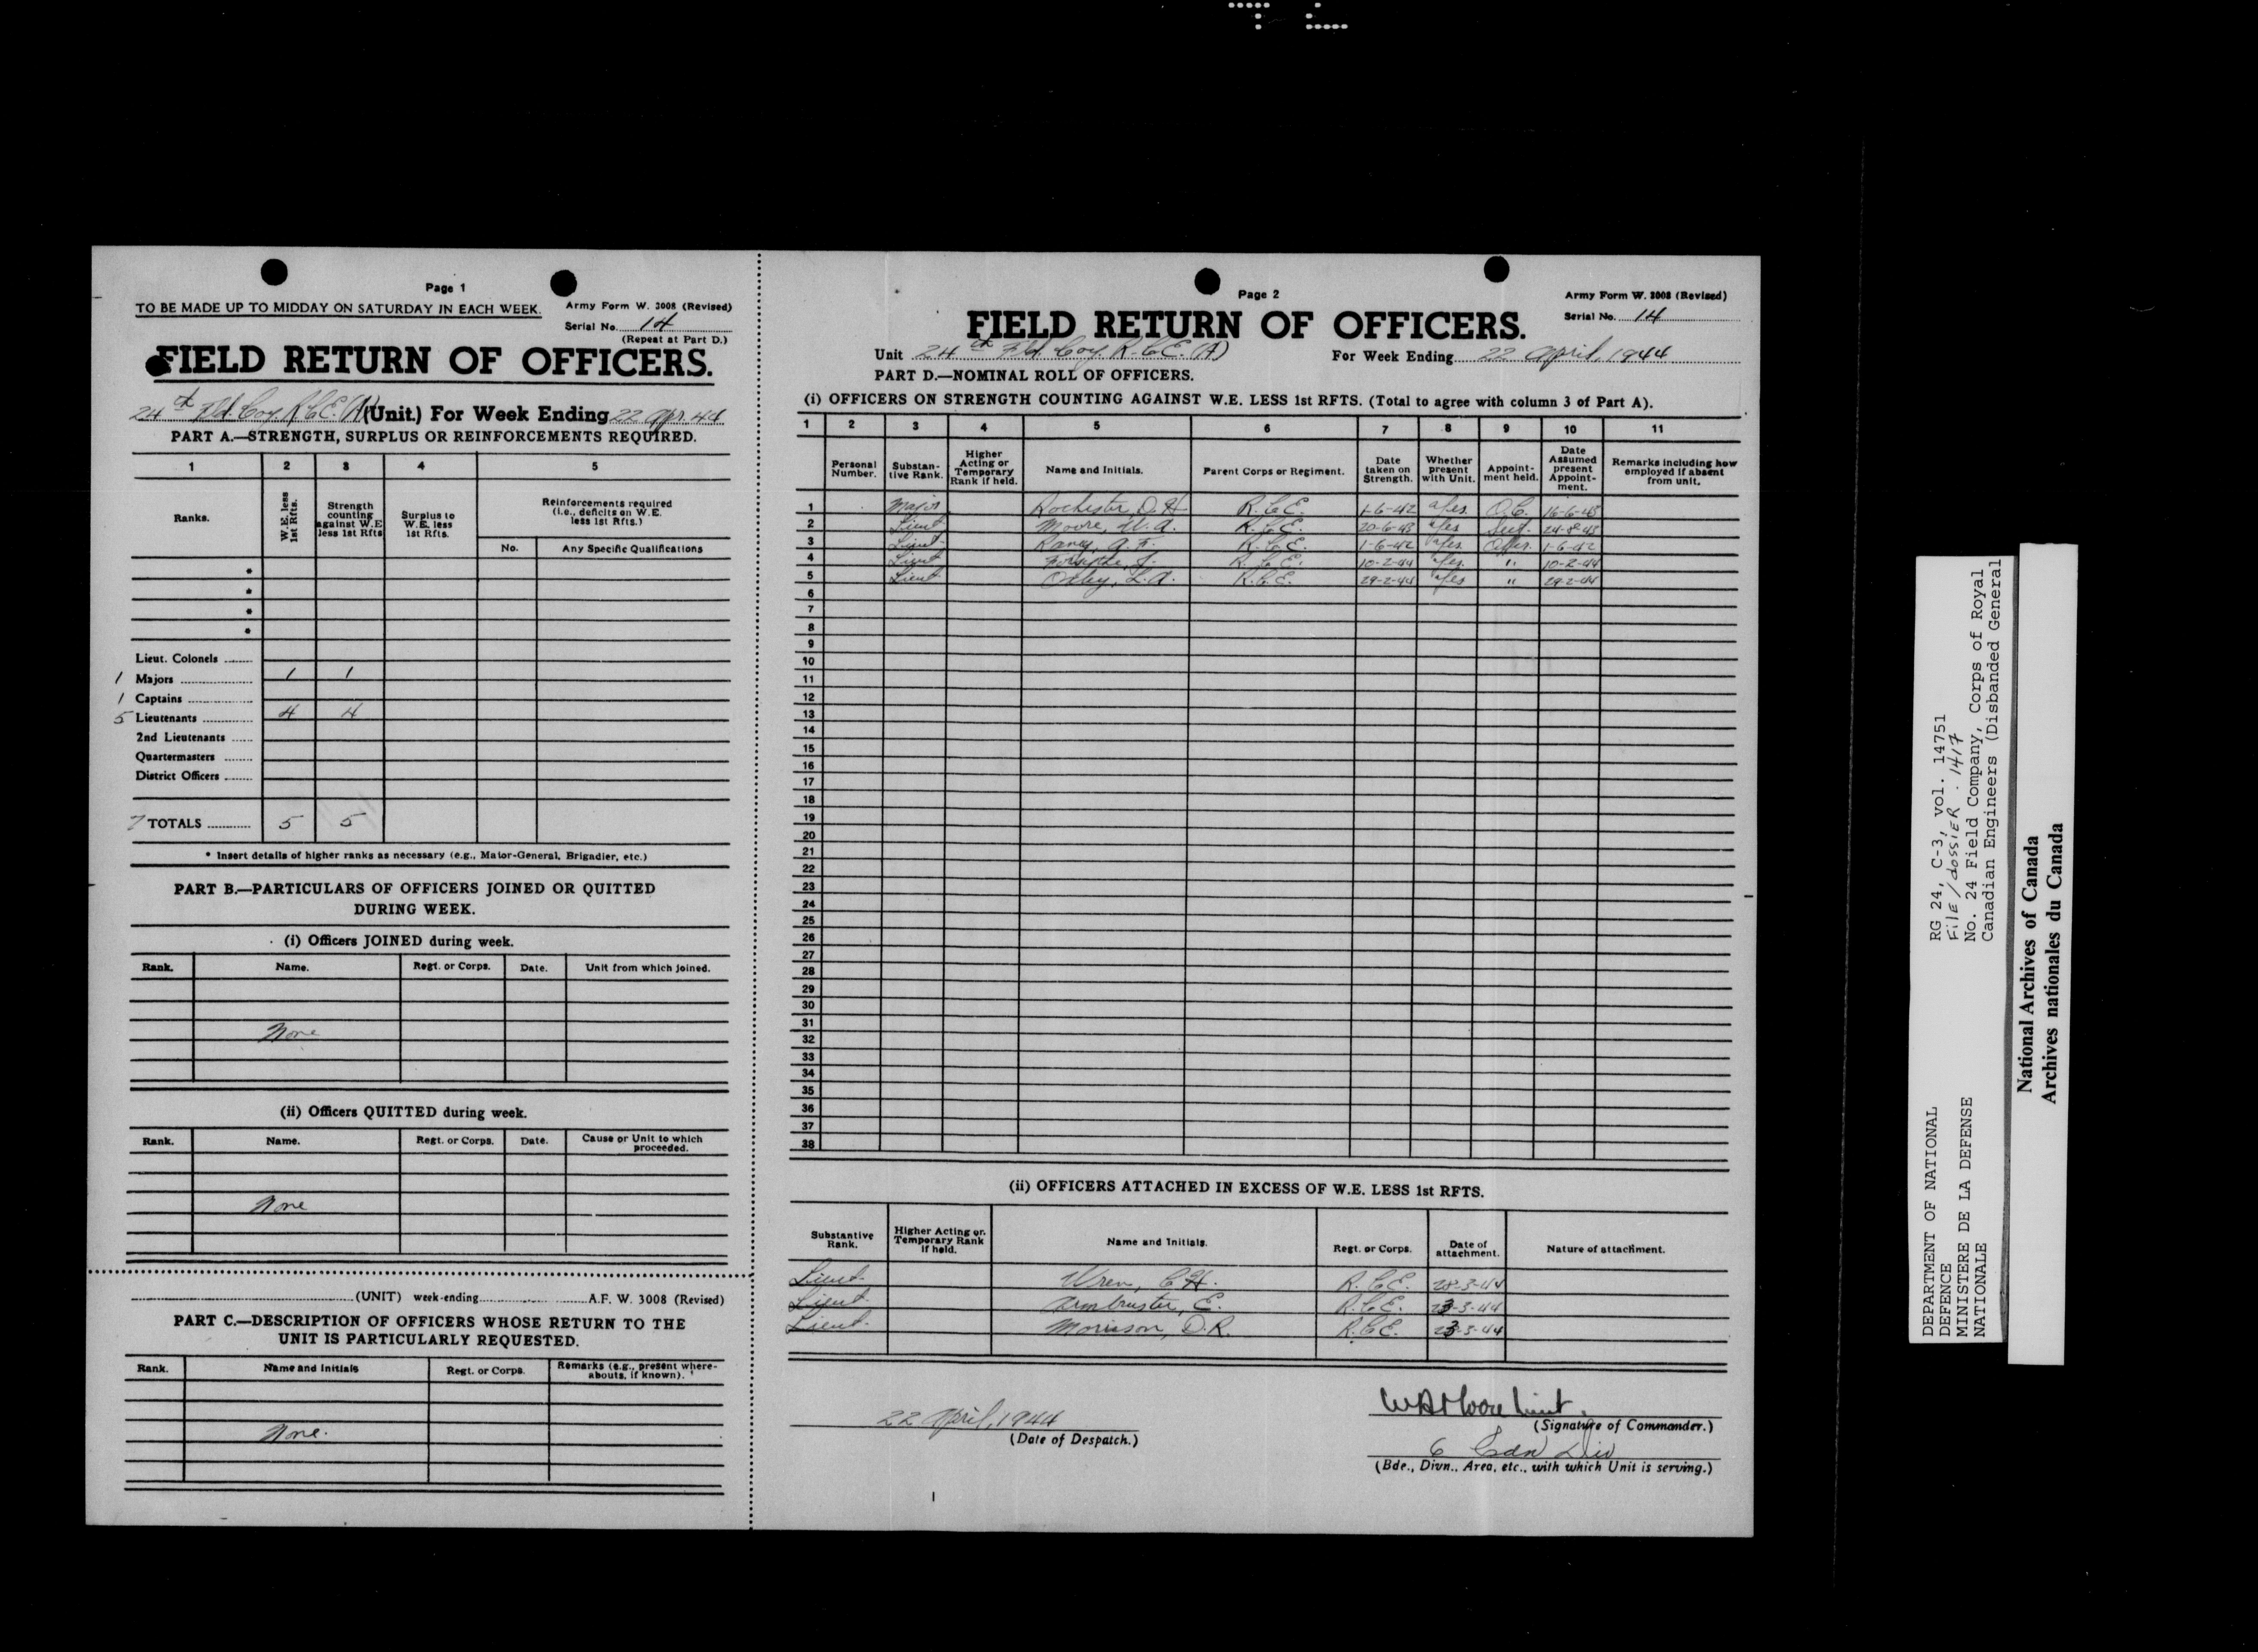 Page 1
TO BE MADE UP TO MIDDAY ON SATURDAY IN EACH WEEK.
Army Form W. 3008 (Revised)
Serial No. 14
(Repeat at Part D.)
FIELD RETURN OF OFFICERS.
24th Fd. Coy. R.C.E. (A) (Unit.) For Week Ending 22 Apr. 44
PART A.—STRENGTH, SURPLUS OR REINFORCEMENTS REQUIRED.
1 2 3 4 5
Ranks.
W.E. less 1st Rfts.
Strength counting against W.E less 1st Rfts
Surplus to W.E. less 1st Rfts.
Reinforcements required (i.e., deficits on W.E. less 1st Rfts.)
No. Any Specific Qualifications
*
*
*
*
Lieut. Colonels
1 Majors 1 1
1 Captains
5 Lieutenants 4 4
2nd Lieutenants
Quartermasters
District Officers
7 TOTALS 5 5
* Insert details of higher ranks as necessary (e.g., Major-General, Brigadier, etc.)
PART B.—PARTICULARS OF OFFICERS JOINED OR QUITTED
DURING WEEK.
(i) Officers JOINED during week.
Rank. Name. Regt. or Corps. Date. Unit from which joined.
None
(ii) Officers QUITTED during week.
Rank. Name. Regt. or Corps. Date. Cause or Unit to which proceeded.
None
(UNIT) week-ending A.F. W. 3008 (Revised)
PART C.—DESCRIPTION OF OFFICERS WHOSE RETURN TO THE
UNIT IS PARTICULARLY REQUESTED.
Rank. Name and Initials Regt. or Corps. Remarks (e.g., present where-abouts, if known).
None.
Page 2
Army Form W. 3008 (Revised)
Serial No. 14
FIELD RETURN OF OFFICERS.
Unit 24th Fd. Coy. R.C.E. (A) For Week Ending 22 April, 1944
PART D.—NOMINAL ROLL OF OFFICERS.
(i) OFFICERS ON STRENGTH COUNTING AGAINST W.E. LESS 1st RFTS. (Total to agree with column 3 of Part A).
1 2 3 4 5 6 7 8 9 10 11
Personal Number.
Substan-tive Rank.
Higher Acting or Temporary Rank if held.
Name and Initials.
Parent Corps or Regiment.
Date taken on Strength.
Whether present with Unit.
Appoint-ment held.
Date Assumed present Appoint-ment.
Remarks including how employed if absent from unit.
1 Major Rochester, D.H. R.C.E. 1-6-42 yes O.C.
2 Lieut. Moore, W.A. R.C.E. 20-6-43 yes
3 Lieut. R.C.E. 1-6-42 yes Offr. 1-6-42
4 Lieut. Forsythe, J. R.C.E. 10-2-44 yes " 10-2-44
5 Lieut. L.A. R.C.E. 29-2-44 yes " 29-2-44
6
7
8
9
10
11
12
13
14
15
16
17
18
19
20
21
22
23
24
25
26
27
28
29
30
31
32
33
34
35
36
37
38
(ii) OFFICERS ATTACHED IN EXCESS OF W.E. LESS 1st RFTS.
Substantive Rank.
Higher Acting or Temporary Rank if held.
Name and Initials.
Regt. or Corps.
Date of attachment.
Nature of attachment.
Lieut. Wren, C.H. R.C.E. 28-3-44
Lieut. Armbruster, E. R.C.E. 23-3-44
Lieut. Morisson, D.R. R.C.E. 23-3-44
22 April, 1944
(Date of Despatch.)
WAMoore Lieut.
(Signature of Commander.)
6 Cdn Div
(Bde., Divn., Area, etc., with which Unit is serving.)
DEPARTMENT OF NATIONAL
DEFENCE
MINISTERE DE LA DEFENSE
NATIONALE
RG 24, C-3, vol. 14751
File/dossier . 1417
No. 24 Field Company, Corps of Royal
Canadian Engineers (Disbanded General
National Archives of Canada
Archives nationales du Canada